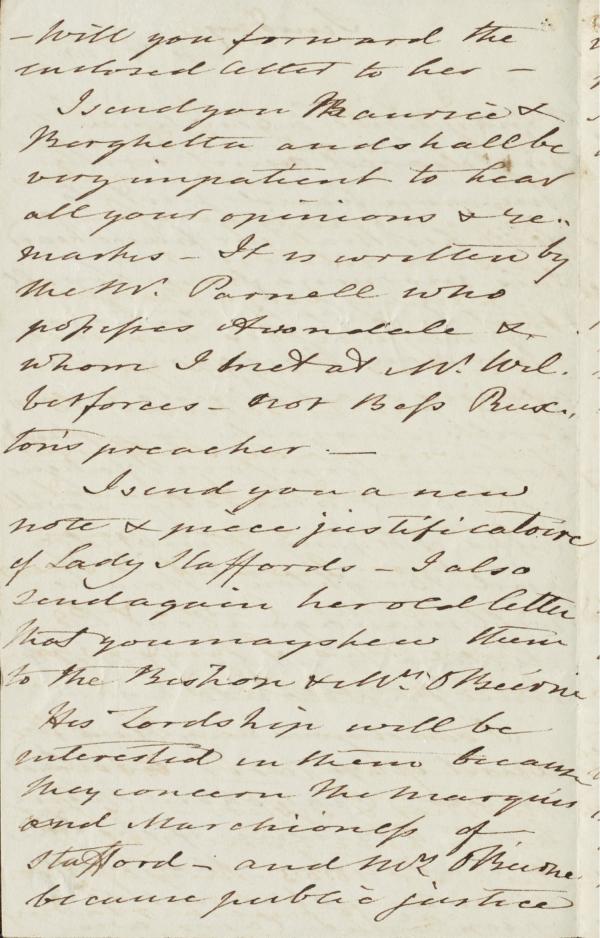 - Will you forward the
enclosed letter to her -
I send you Maurice &
Berghetta and shall be
very impatient to hear
all your opinions & re-
marks - It is written by
the Mr. Parnell who
possesses Avondale &
whom I met at Mr. Wil-
berforces - not Bess Rux-
ton's preacher -
I send you a new
note & piece justificatoire
of Lady Staffords - I also
send again her old letter
that you may shew them
to the Bishop & Mrs. OBeirne
His Lordship will be
interested in them because
they concern the Marquis
and Marchioness of
Stafford - and Mrs OBeirne
because public justice